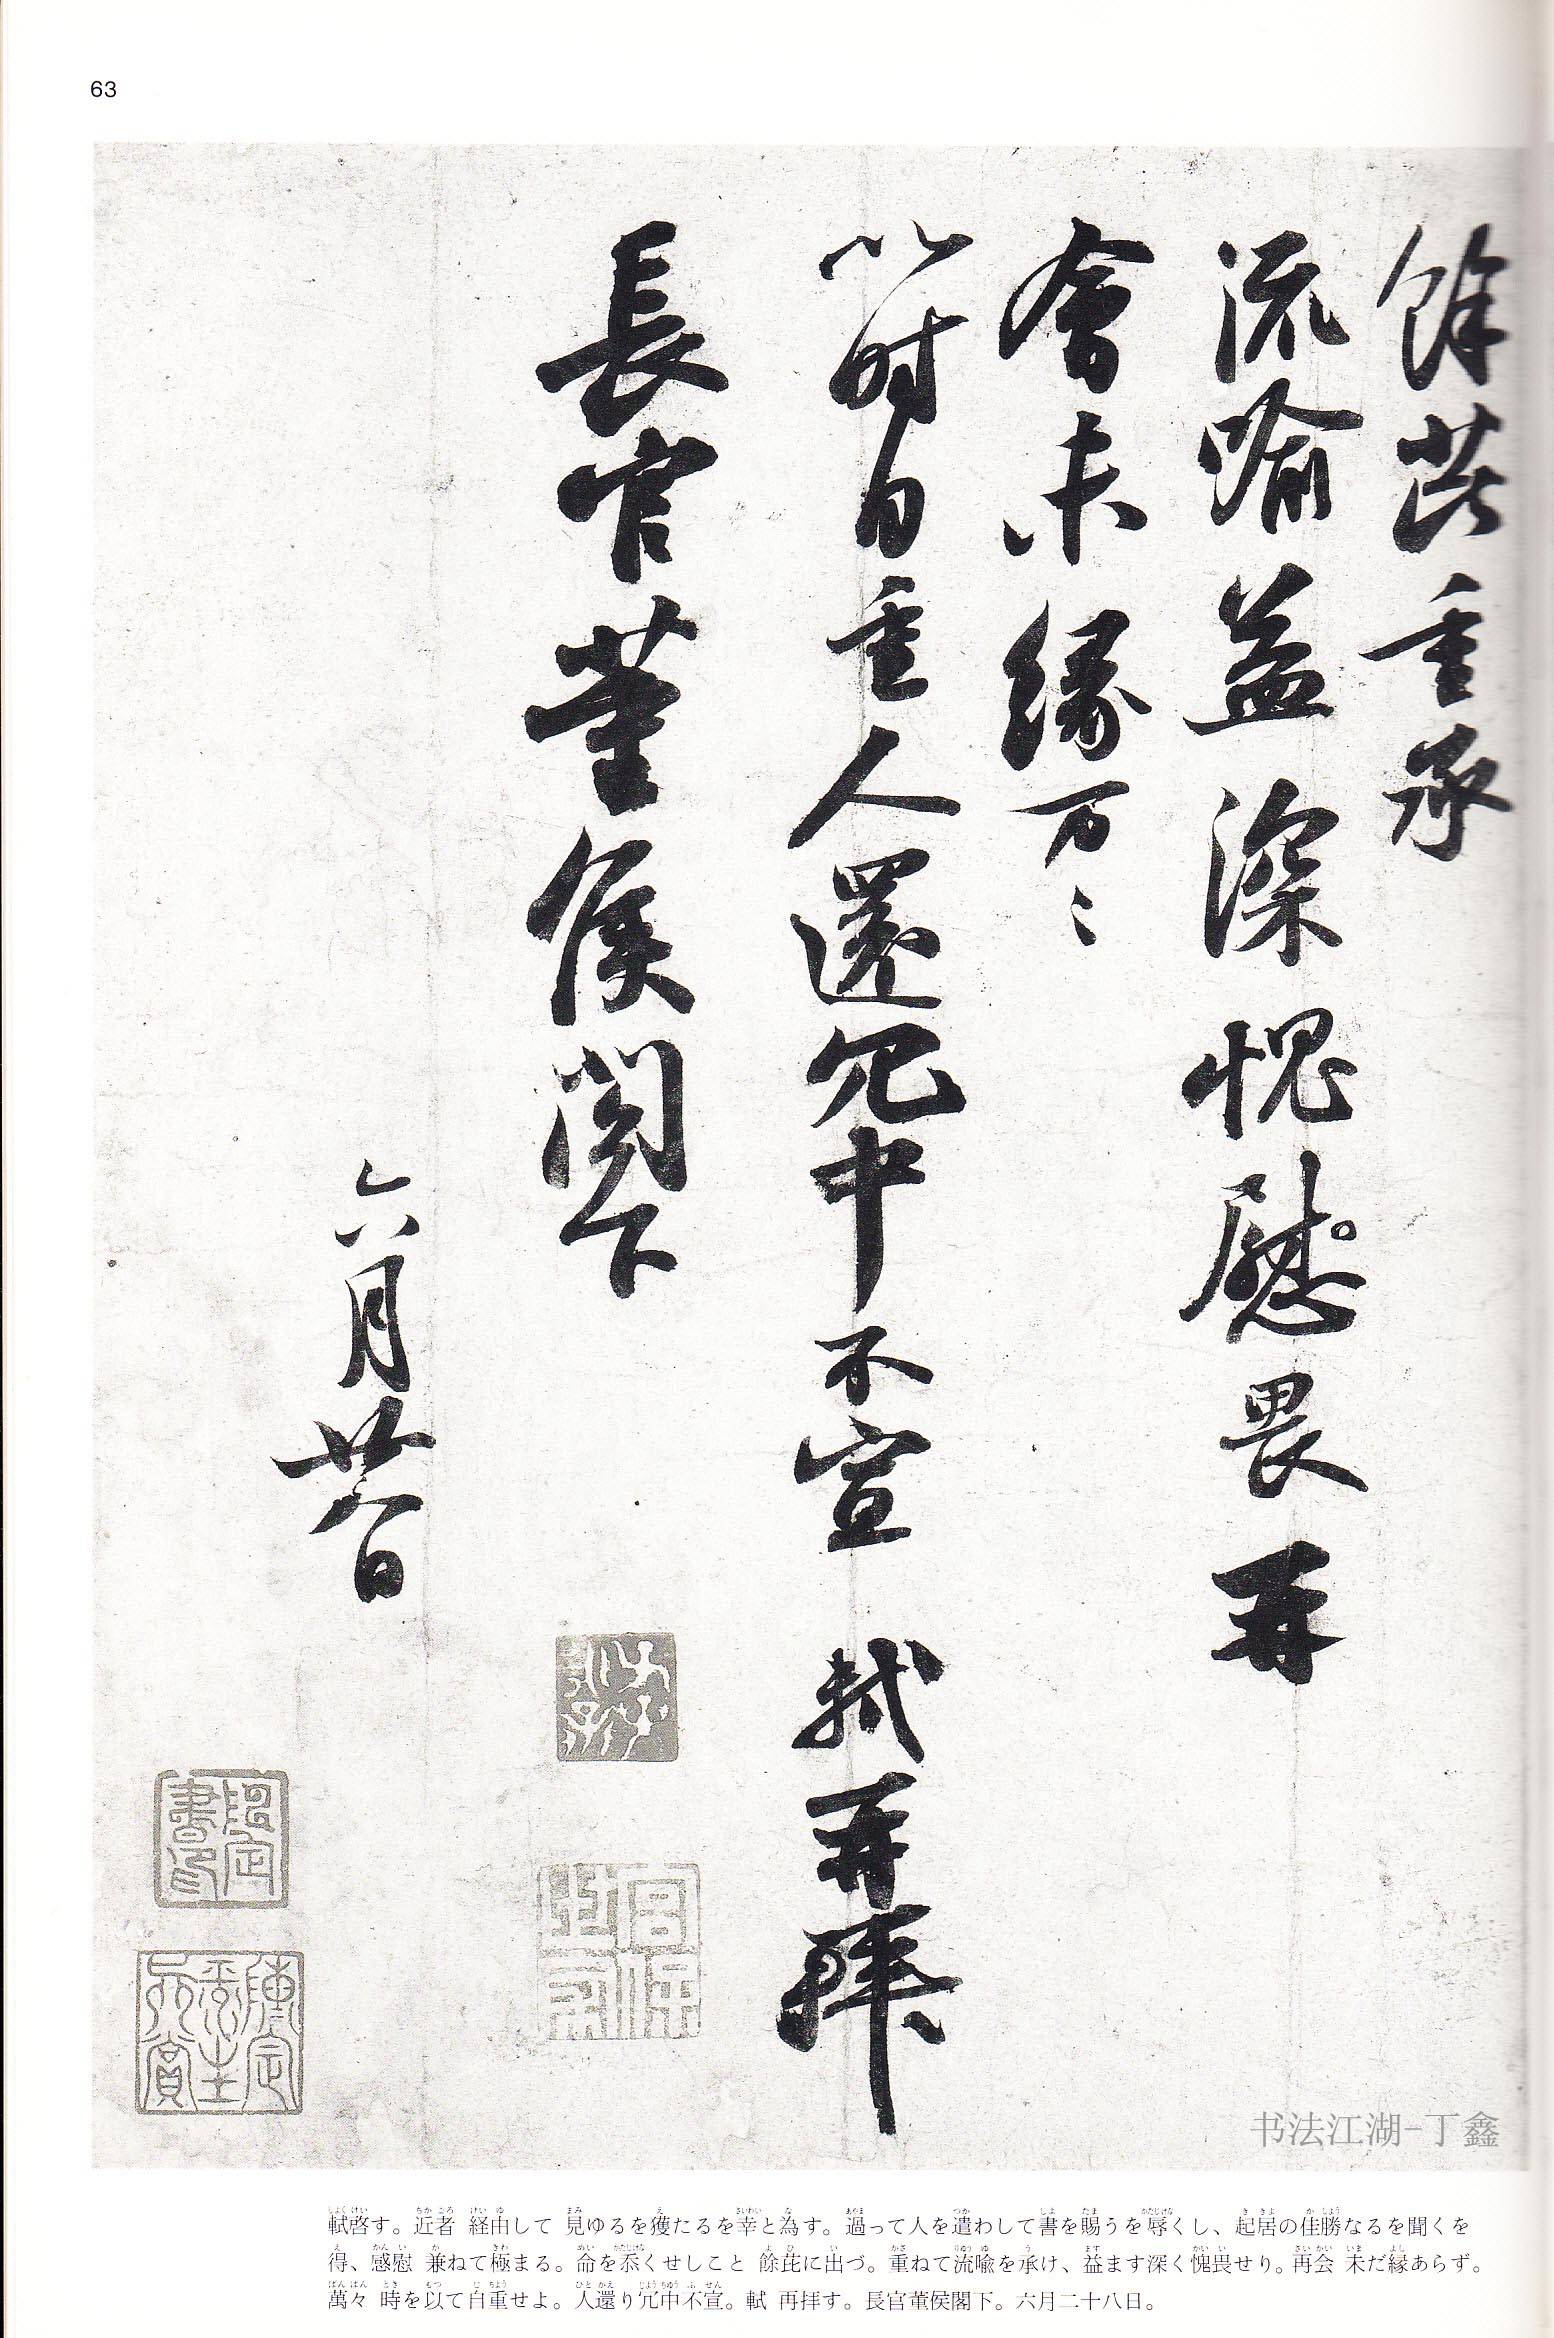 63
餘茈重承
流喻益深愧慰畏再
會未緣万〻
以时自重人還冗中不宣 軾再拜
長官董侯閤下
六月廿八日
书法江湖-丁鑫
軾啓す。近者 経由して 見ゆるを獲たるを幸と為す。過って人を遣わして書を賜うを辱くし、起居の佳勝なるを聞くを
得、感慰 兼ねて極まる。命を忝くせしこと 餘茈に出づ。重ねて流喩を承け、益ます深く愧畏せり。再会 未だ縁あらず。
萬々 時を以て自重せよ。人還り冗中不宣。軾 再拝す。長官董侯閣下。六月二十八日。